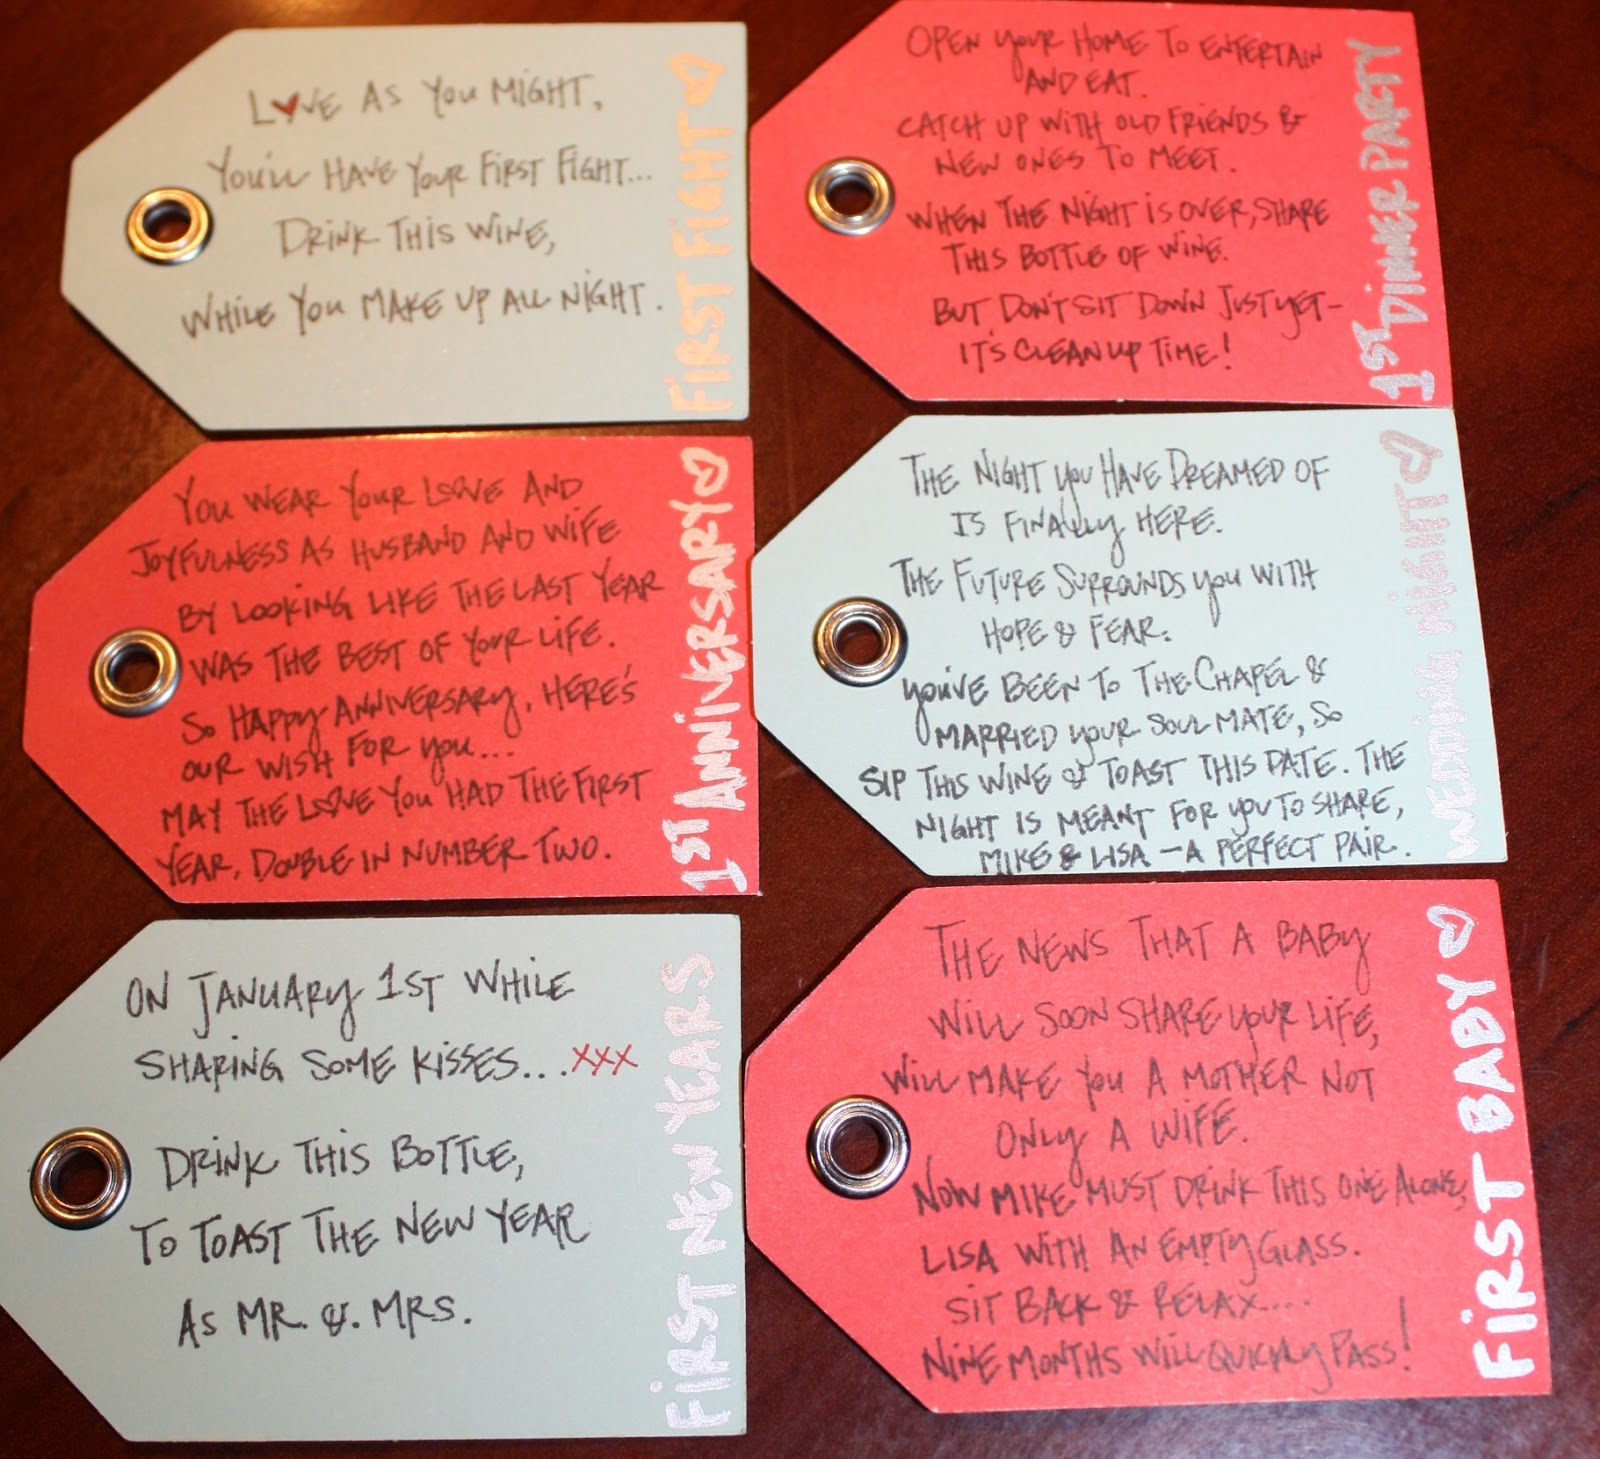 LOVE AS YOU MIGHT,
YOU'LL HAVE YOUR FIRST FIGHT...
DRINK THIS WINE,
WHILE YOU MAKE UP ALL NIGHT.
FIRST FIGHT
OPEN YOUR HOME TO ENTERTAIN
AND EAT.
CATCH UP WITH OLD FRIENDS &
NEW ONES TO MEET.
WHEN THE NIGHT IS OVER, SHARE
THIS BOTTLE OF WINE.
BUT DON'T SIT DOWN JUST YET-
IT'S CLEAN UP TIME!
1ST DINNER PARTY
YOU WEAR YOUR LOVE AND
JOYFULNESS AS HUSBAND AND WIFE
BY LOOKING LIKE THE LAST YEAR
WAS THE BEST OF YOUR LIFE.
SO HAPPY ANNIVERSARY, HERE'S
OUR WISH FOR YOU...
MAY THE LOVE YOU HAD THE FIRST
YEAR, DOUBLE IN NUMBER TWO.
1ST ANNIVERSARY
THE NIGHT YOU HAVE DREAMED OF
IS FINALLY HERE.
THE FUTURE SURROUNDS YOU WITH
HOPE & FEAR.
YOU'VE BEEN TO THE CHAPEL &
MARRIED YOUR SOUL MATE, SO
SIP THIS WINE & TOAST THIS DATE. THE
NIGHT IS MEANT FOR YOU TO SHARE,
MIKE & LISA - A PERFECT PAIR.
WEDDING NIGHT
ON JANUARY 1ST WHILE
SHARING SOME KISSES...XXX
DRINK THIS BOTTLE,
TO TOAST THE NEW YEAR
AS MR. &. MRS.
FIRST NEW YEARS
THE NEWS THAT A BABY
WILL SOON SHARE YOUR LIFE,
WILL MAKE YOU A MOTHER NOT
ONLY A WIFE.
NOW MIKE MUST DRINK THIS ONE ALONE,
LISA WITH AN EMPTY GLASS.
SIT BACK & RELAX....
NINE MONTHS WILL QUICKLY PASS!
FIRST BABY